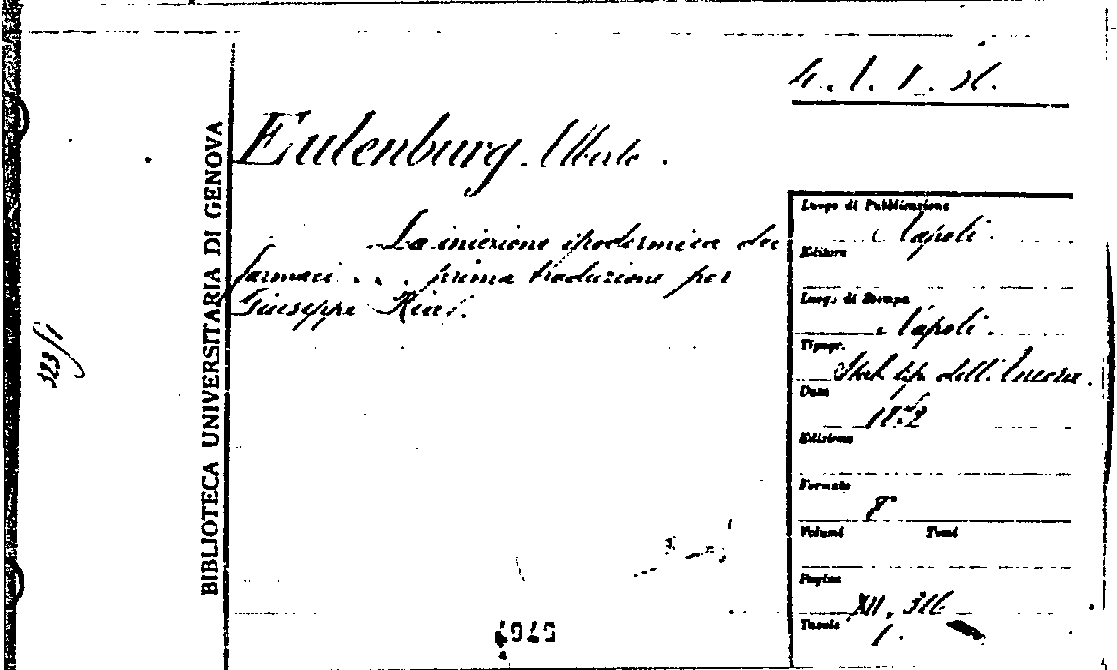 Eulenburg Alberto.
La iniezione ipodermica dei
farmaci . . . prima traduzione per
Giuseppe Ricci.
BIBLIOTECA UNIVERSITARIA DI GENOVA
323/1
Luogo di Pubblicazione
Napoli.
Editore
Luogo di Stampa
Napoli.
Tipogr.
Stab. tip. dell'
Data
Edizione
Formato
8°
Volumi Tomi
Pagine
XII, 316
Tavole
1.